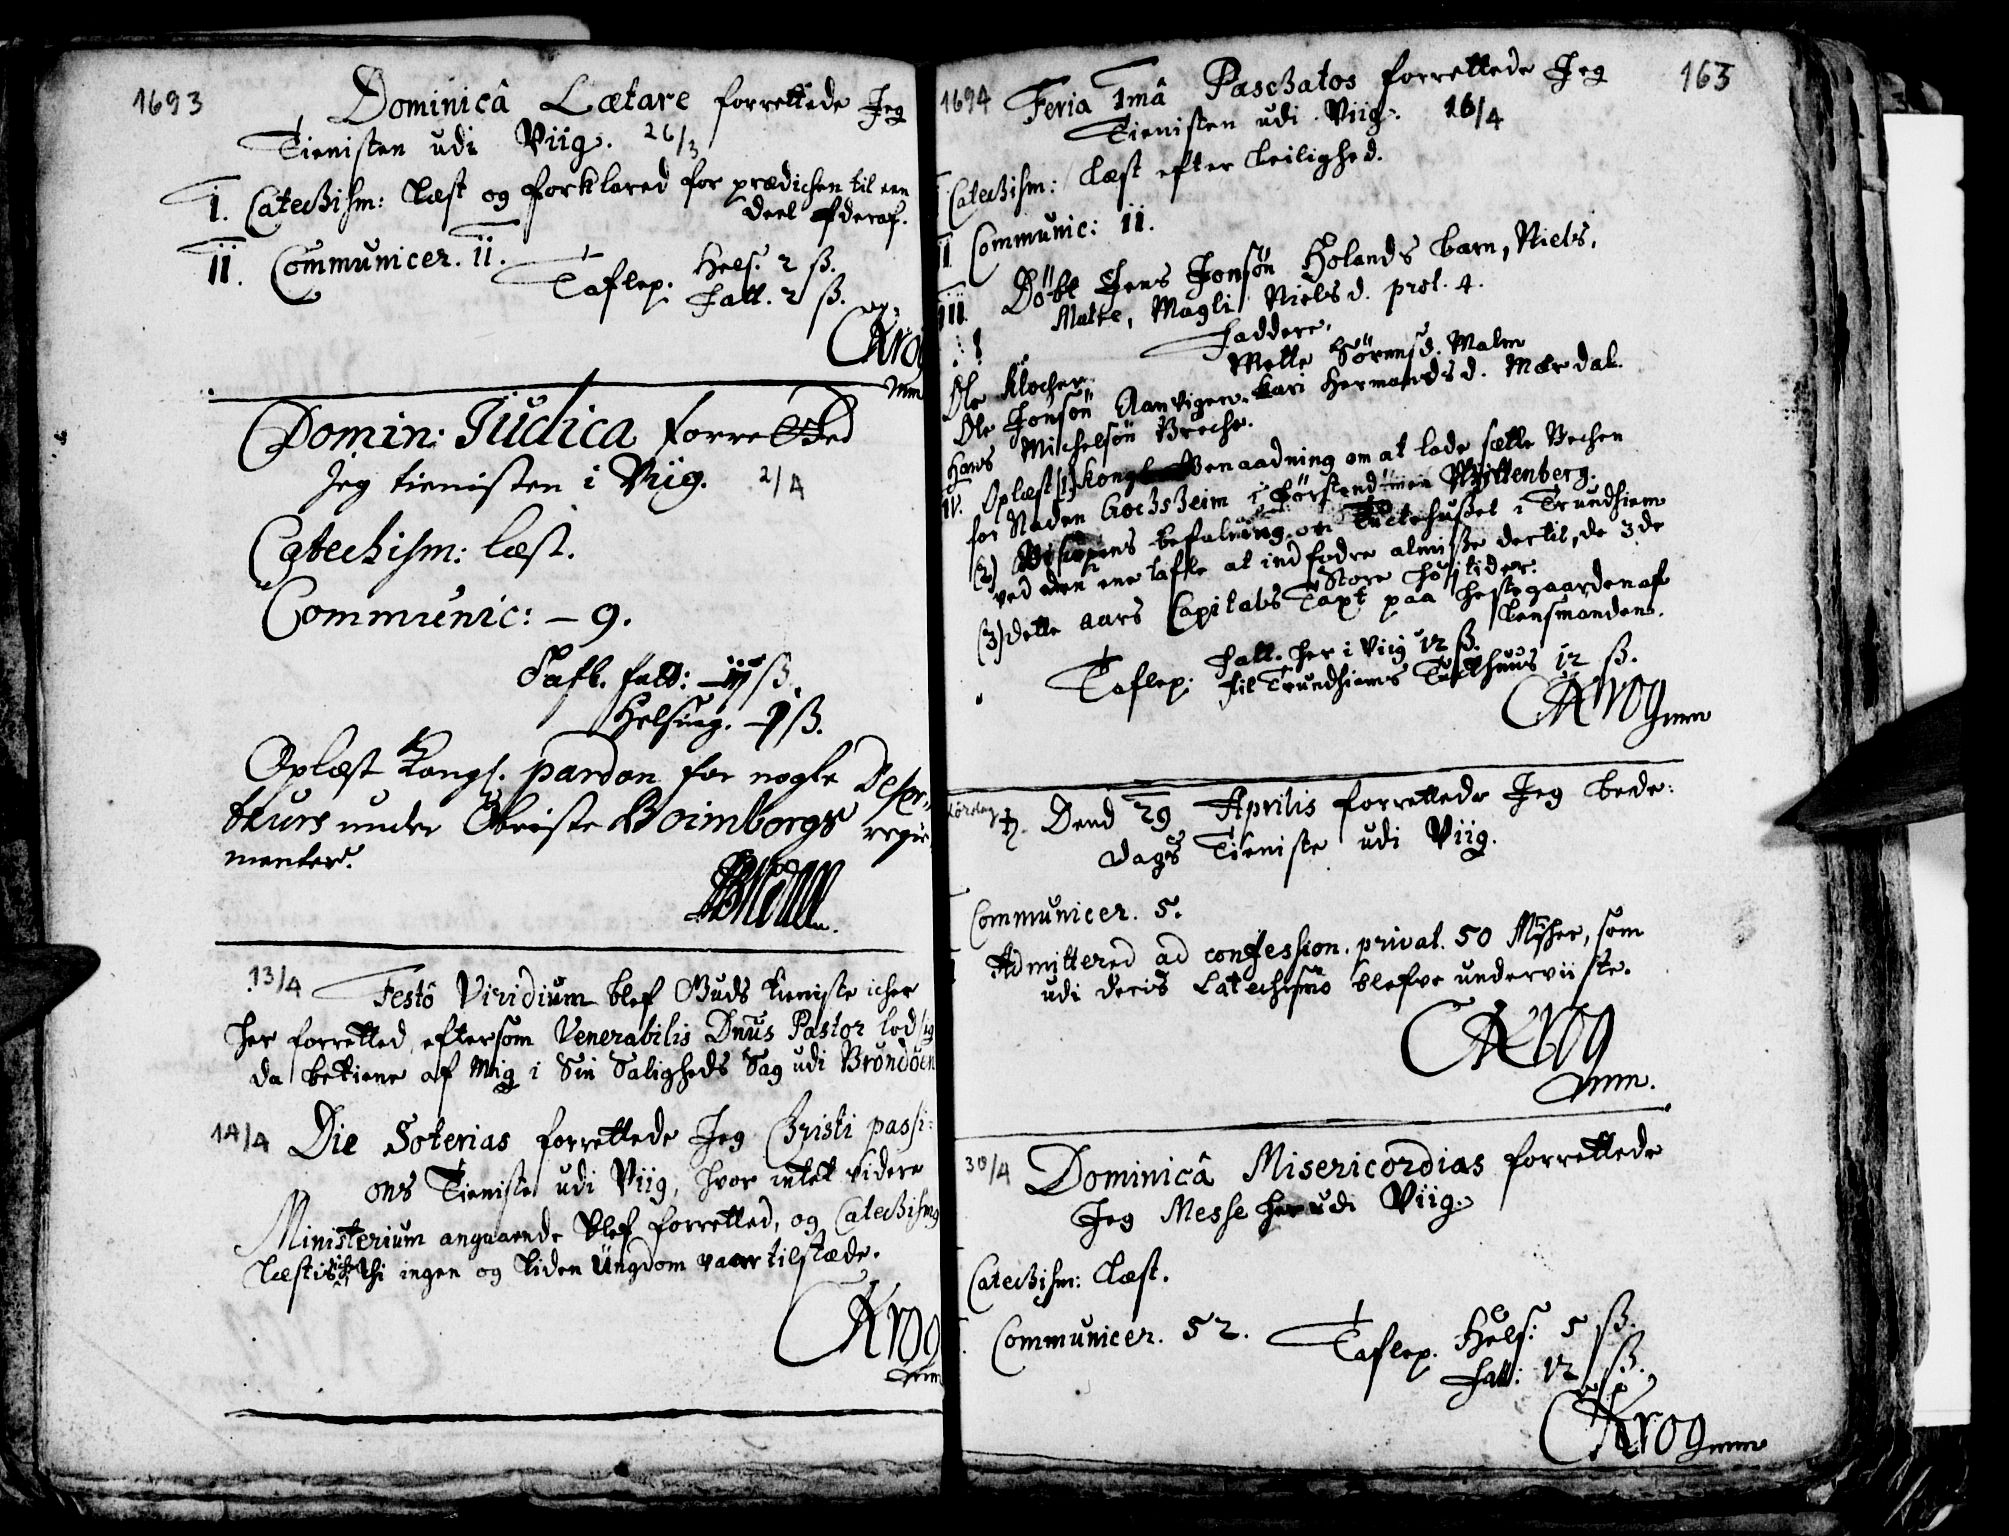 1693
Dominicâ Lætare forrettede Jeg
Tienisten udi Viig. 26/3
I. Catechism: Læst og forklared for prædichen til een
deel af deraf.
II. Communicer. 11.
Taflep. Hels: 2 ß.
Fatt. 2 ß.
CKrog
mm
Domin: Judica forretted
Jeg tienisten i Viig. 2/4
Catechism: læst.
Communic: – 9.
Tafl. fatt: – ß.
Helsing. – ß.
Oplæst Kongl. pardon for nogle Deser-
teurs under Obriste Boimborgs regie
menter.
13/4 Festô Viridium blef Guds tieniste icher
her forretted, eftersom Venerabilis Dnus Pastor lod sig
da betiene af Mig i Sin Saligheds Sag udi Brøndöen
14/4 Die Soterias forrettede Jeg Christi passi-
ons Tieniste udi Viig, hvor intet videre
Ministerium anguaende blef forretted, og Catechismg
Læstis icke thi ingen og liden Ungdom vaar tilstæde.
CKrog
mm
1694 Feria 1mâ Paschatos forrettede Jeg 163
Tienisten udi Viig: 16/4
Catechism: Læst efter Leilighed.
II Communic: 11.
III Döbt Jens Jonsön Holands barn, Niels,
Matre, Magli Nielsd. prol. 4.
Faddere,
Ole Klocher. Mette Sörensd. Malm
Ole Jonsön Aanvigen. Kari Hermandsd. Mærdal.
Hans Michelsön Breche.
IV. Oplæst (1) Kongl. Benaadning om at lade sætte Bechen
for Staden Gochsheim i Førstend: Wyrttenberg.
(2) Bispens befalning om Tuctehuset i Trundhiem
ved den ene tafle at indfodre almisse dertil, de 3de
Store Høitider.
(3) dette aars Capitels Taxt paa Hestegaarden af
Lensmanden.
Taflep: Fatt. her i Viig 12 ß.
til Trundhiems Tuchthuus 12 ß.
CKrog mm
Lördag ♄. Dend 29 Aprilis forrettede Jeg bede-
dags Tieniste udi Viig.
Communicer. 5.
Admittered ad confession. privat. 50 Mscher, som
udi deris Catechismo blefve underviiste.
CKrog
mm.
30/4 Dominicâ Misericordias forrettede
Jeg Messe her udi Viig.
Catechism: Læst.
Communicer. 52. Taflep. Hels: 5 ß.
Fatt: 12 ß.
CKrog mm